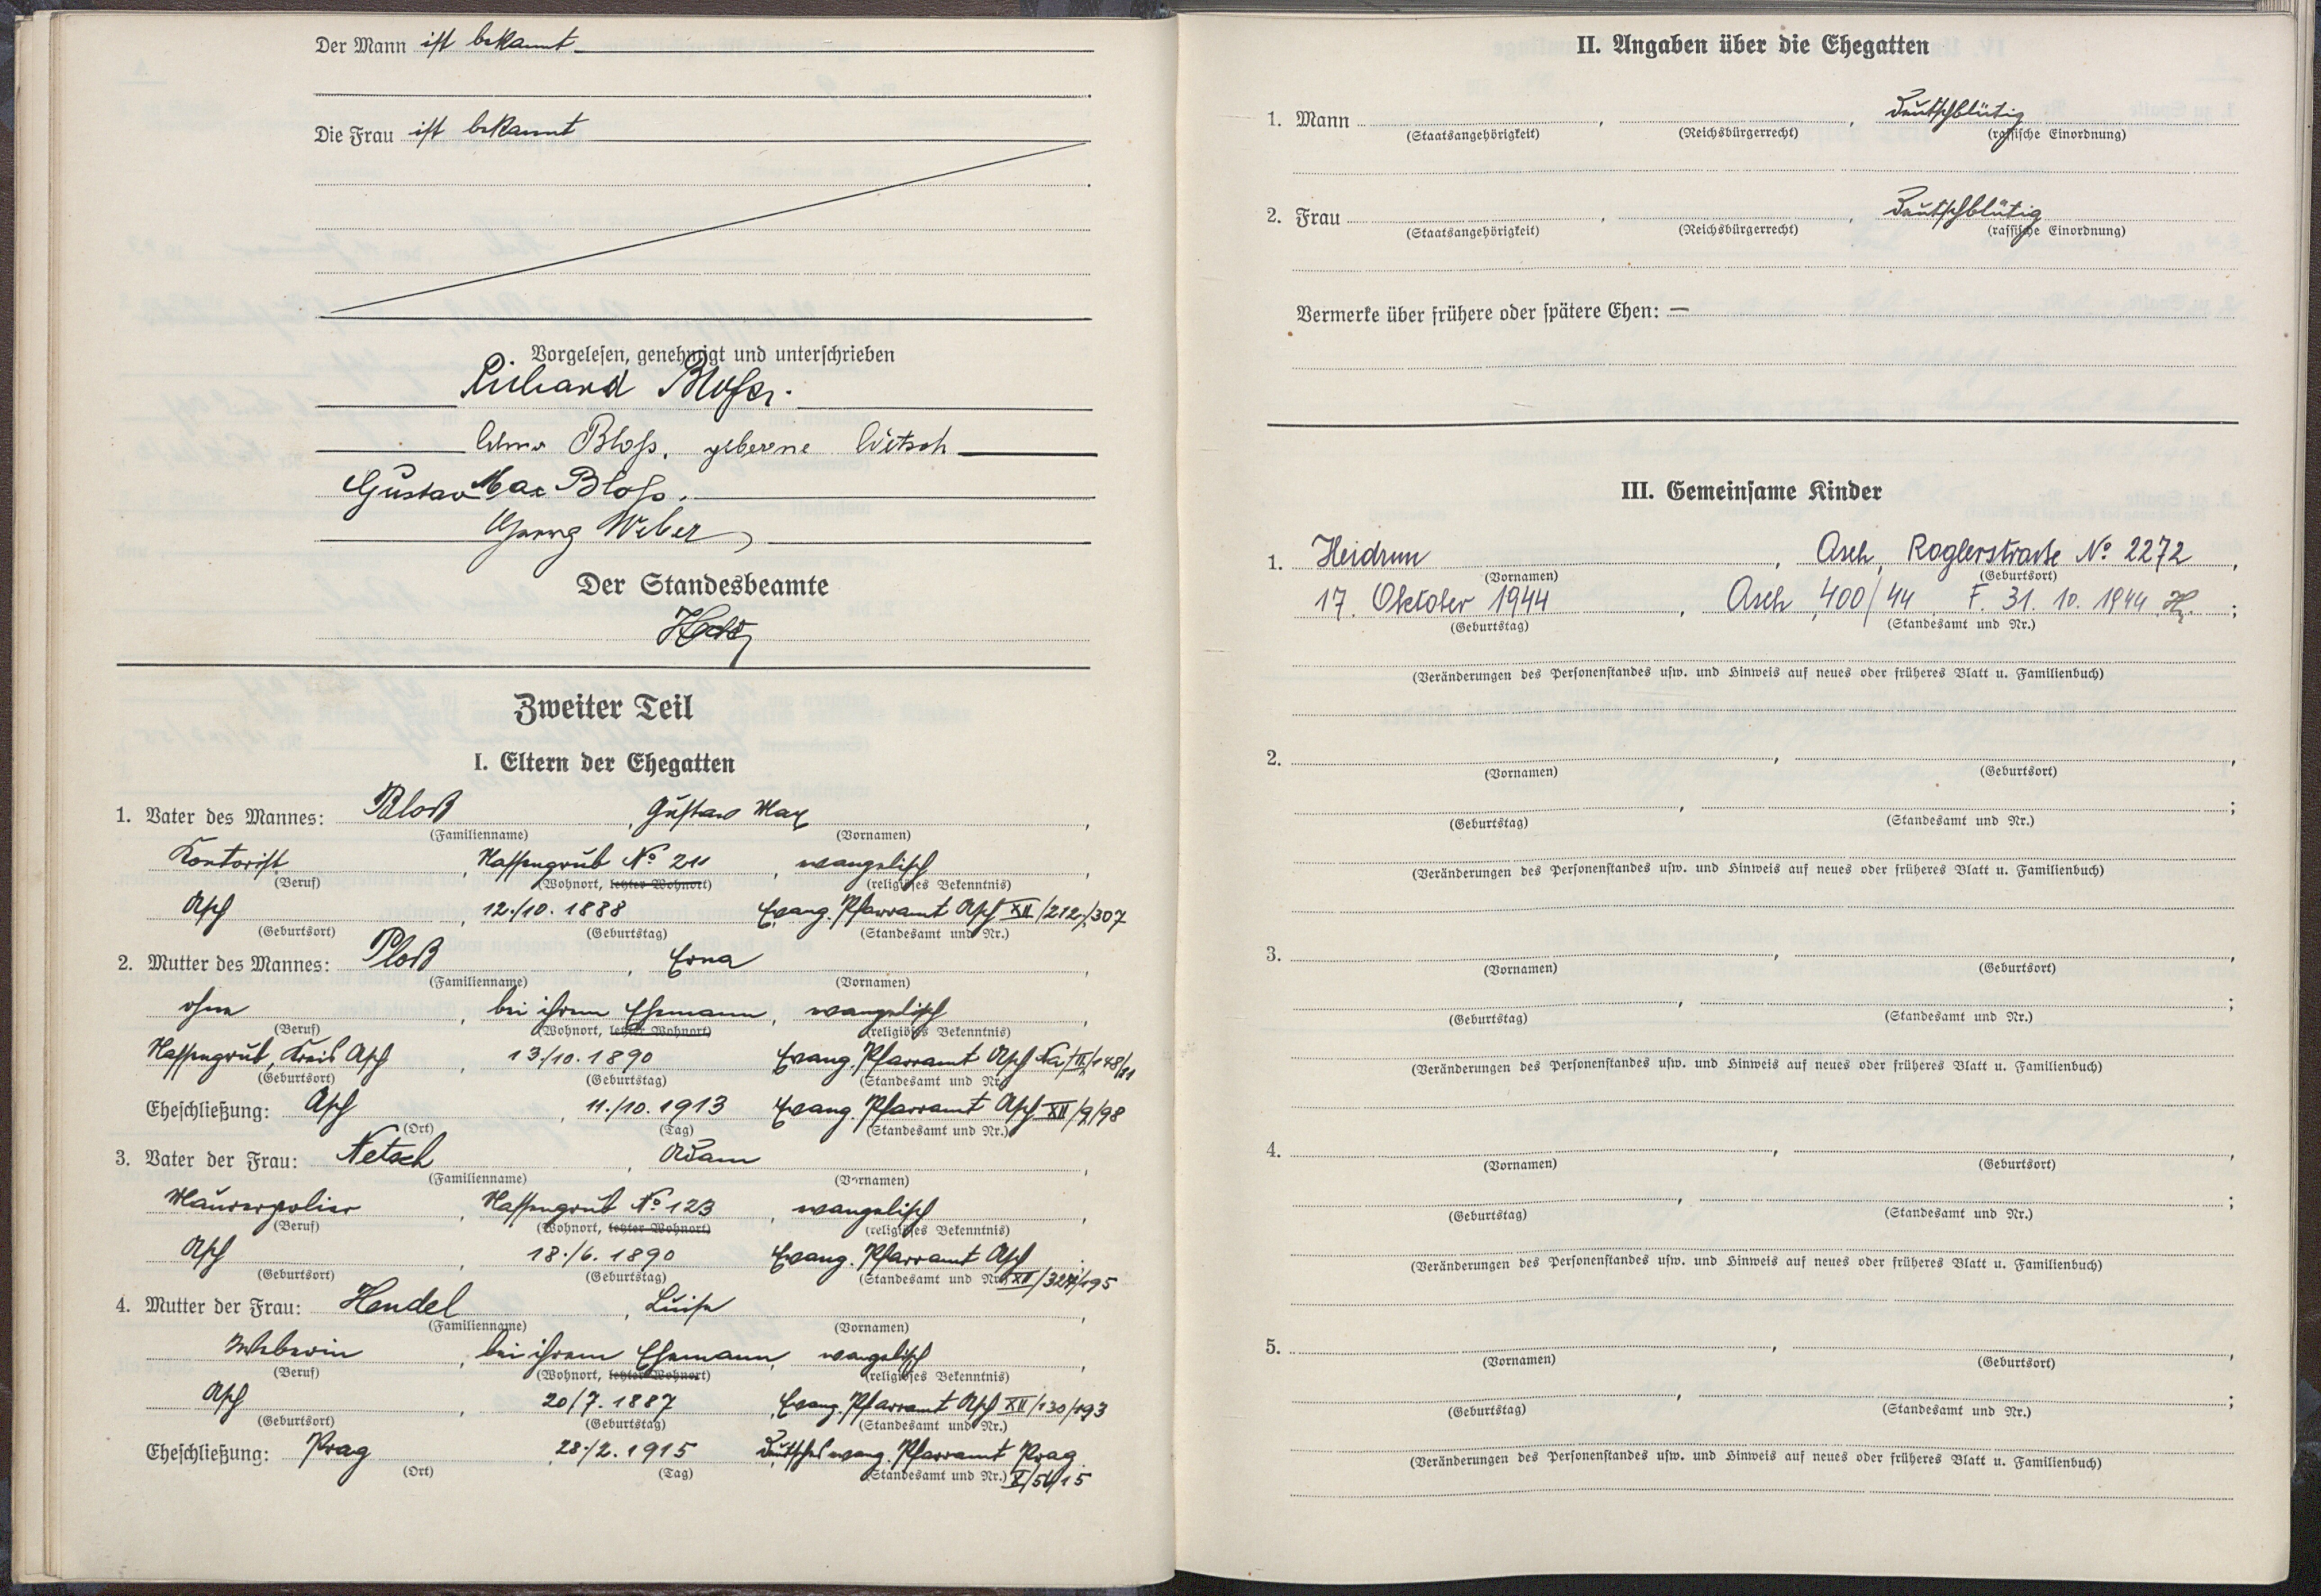 Der Mann ist bekannt
Die Frau ist bekannt
Vorgelesen, genehmigt und unterschrieben
Richard Bloß.
Bloß, geborene Netsch
Gustav Max Bloß.
Georg Weber
Der Standesbeamte
Zweiter Teil
I. Eltern der Ehegatten
1. Vater des Mannes: Bloß, Gustav Max,
(Familienname) (Vornamen)
Kontorist, Nassengrub No 211, evangelisch,
(Beruf) (Wohnort, letzter Wohnort) (religiöses Bekenntnis)
Asch, 12./10. 1888 Evang. Pfarramt Asch XII/212/307
(Geburtsort) (Geburtstag) (Standesamt und Nr.)
2. Mutter des Mannes: Ploß, Erna,
(Familienname) (Vornamen)
ohne, bei ihrem Ehemann, evangelisch,
(Beruf) (Wohnort, letzter Wohnort) (religiöses Bekenntnis)
Nassengrub, Kreis Asch, 13./10. 1890 Evang. Pfarramt Asch
(Geburtsort) (Geburtstag) (Standesamt und Nr.)
Eheschließung: Asch, 11./10. 1913 Evang. Pfarramt Asch XII/9/98
(Ort) (Tag) (Standesamt und Nr.)
3. Vater der Frau: Netsch, Adam,
(Familienname) (Vornamen)
Maurerpolier, Nassengrub No 123, evangelisch,
(Beruf) (Wohnort, letzter Wohnort) (religiöses Bekenntnis)
Asch, 18./6. 1890 Evang. Pfarramt Asch
(Geburtsort) (Geburtstag) (Standesamt und Nr.) XII/327/195
4. Mutter der Frau: Hendel, Luise,
(Familienname) (Vornamen)
Weberin, bei ihrem Ehemann, evangelisch,
(Beruf) (Wohnort, letzter Wohnort) (religiöses Bekenntnis)
Asch, 20/7. 1887 Evang. Pfarramt Asch XII/130/193
(Geburtsort) (Geburtstag) (Standesamt und Nr.)
Eheschließung: Prag, 28./2. 1915 Deutsches evang. Pfarramt Prag
(Ort) (Tag) (Standesamt und Nr.)
II. Angaben über die Ehegatten
1. Mann , , Deutschblütig
(Staatsangehörigkeit) (Reichsbürgerrecht) (rassische Einordnung)
2. Frau , , Deutschblütig
(Staatsangehörigkeit) (Reichsbürgerrecht) (rassische Einordnung)
Vermerke über frühere oder spätere Ehen: —
III. Gemeinsame Kinder
1. Heidrun, Asch, Roglerstraße No 2272,
(Vornamen) (Geburtsort)
17. Oktober 1944, Asch, 400/44 F. 31. 10. 1944 ;
(Geburtstag) (Standesamt und Nr.)
(Veränderungen des Personenstandes usw. und Hinweis auf neues oder früheres Blatt u. Familienbuch)
2. , ,
(Vornamen) (Geburtsort)
, ;
(Geburtstag) (Standesamt und Nr.)
(Veränderungen des Personenstandes usw. und Hinweis auf neues oder früheres Blatt u. Familienbuch)
3. , ,
(Vornamen) (Geburtsort)
, ;
(Geburtstag) (Standesamt und Nr.)
(Veränderungen des Personenstandes usw. und Hinweis auf neues oder früheres Blatt u. Familienbuch)
4. , ,
(Vornamen) (Geburtsort)
, ;
(Geburtstag) (Standesamt und Nr.)
(Veränderungen des Personenstandes usw. und Hinweis auf neues oder früheres Blatt u. Familienbuch)
5. , ,
(Vornamen) (Geburtsort)
, ;
(Geburtstag) (Standesamt und Nr.)
(Veränderungen des Personenstandes usw. und Hinweis auf neues oder früheres Blatt u. Familienbuch)